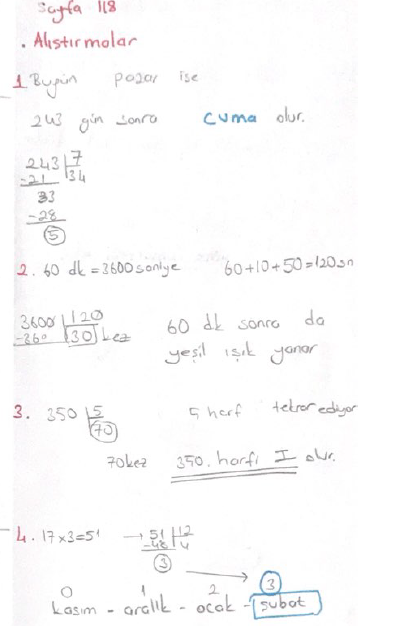 Sayfa 118
. Alıştırmalar
1 Bugün pazar ise
243 gün sonra cuma olur.
243 | 7
-21 34
33
-28
5
2. 60 dk = 3600 saniye 60+10+50=120 sn
3600 | 120
-360 30 kez
60 dk sonra da
yeşil ışık yanar
3. 350 | 5
70
5 harf tekrar ediyor
70 kez 350. harfi I olur.
4. 17x3=51 → 51 | 12
-48 4
3 → 3
0 1 2
kasım - aralık - ocak - şubat